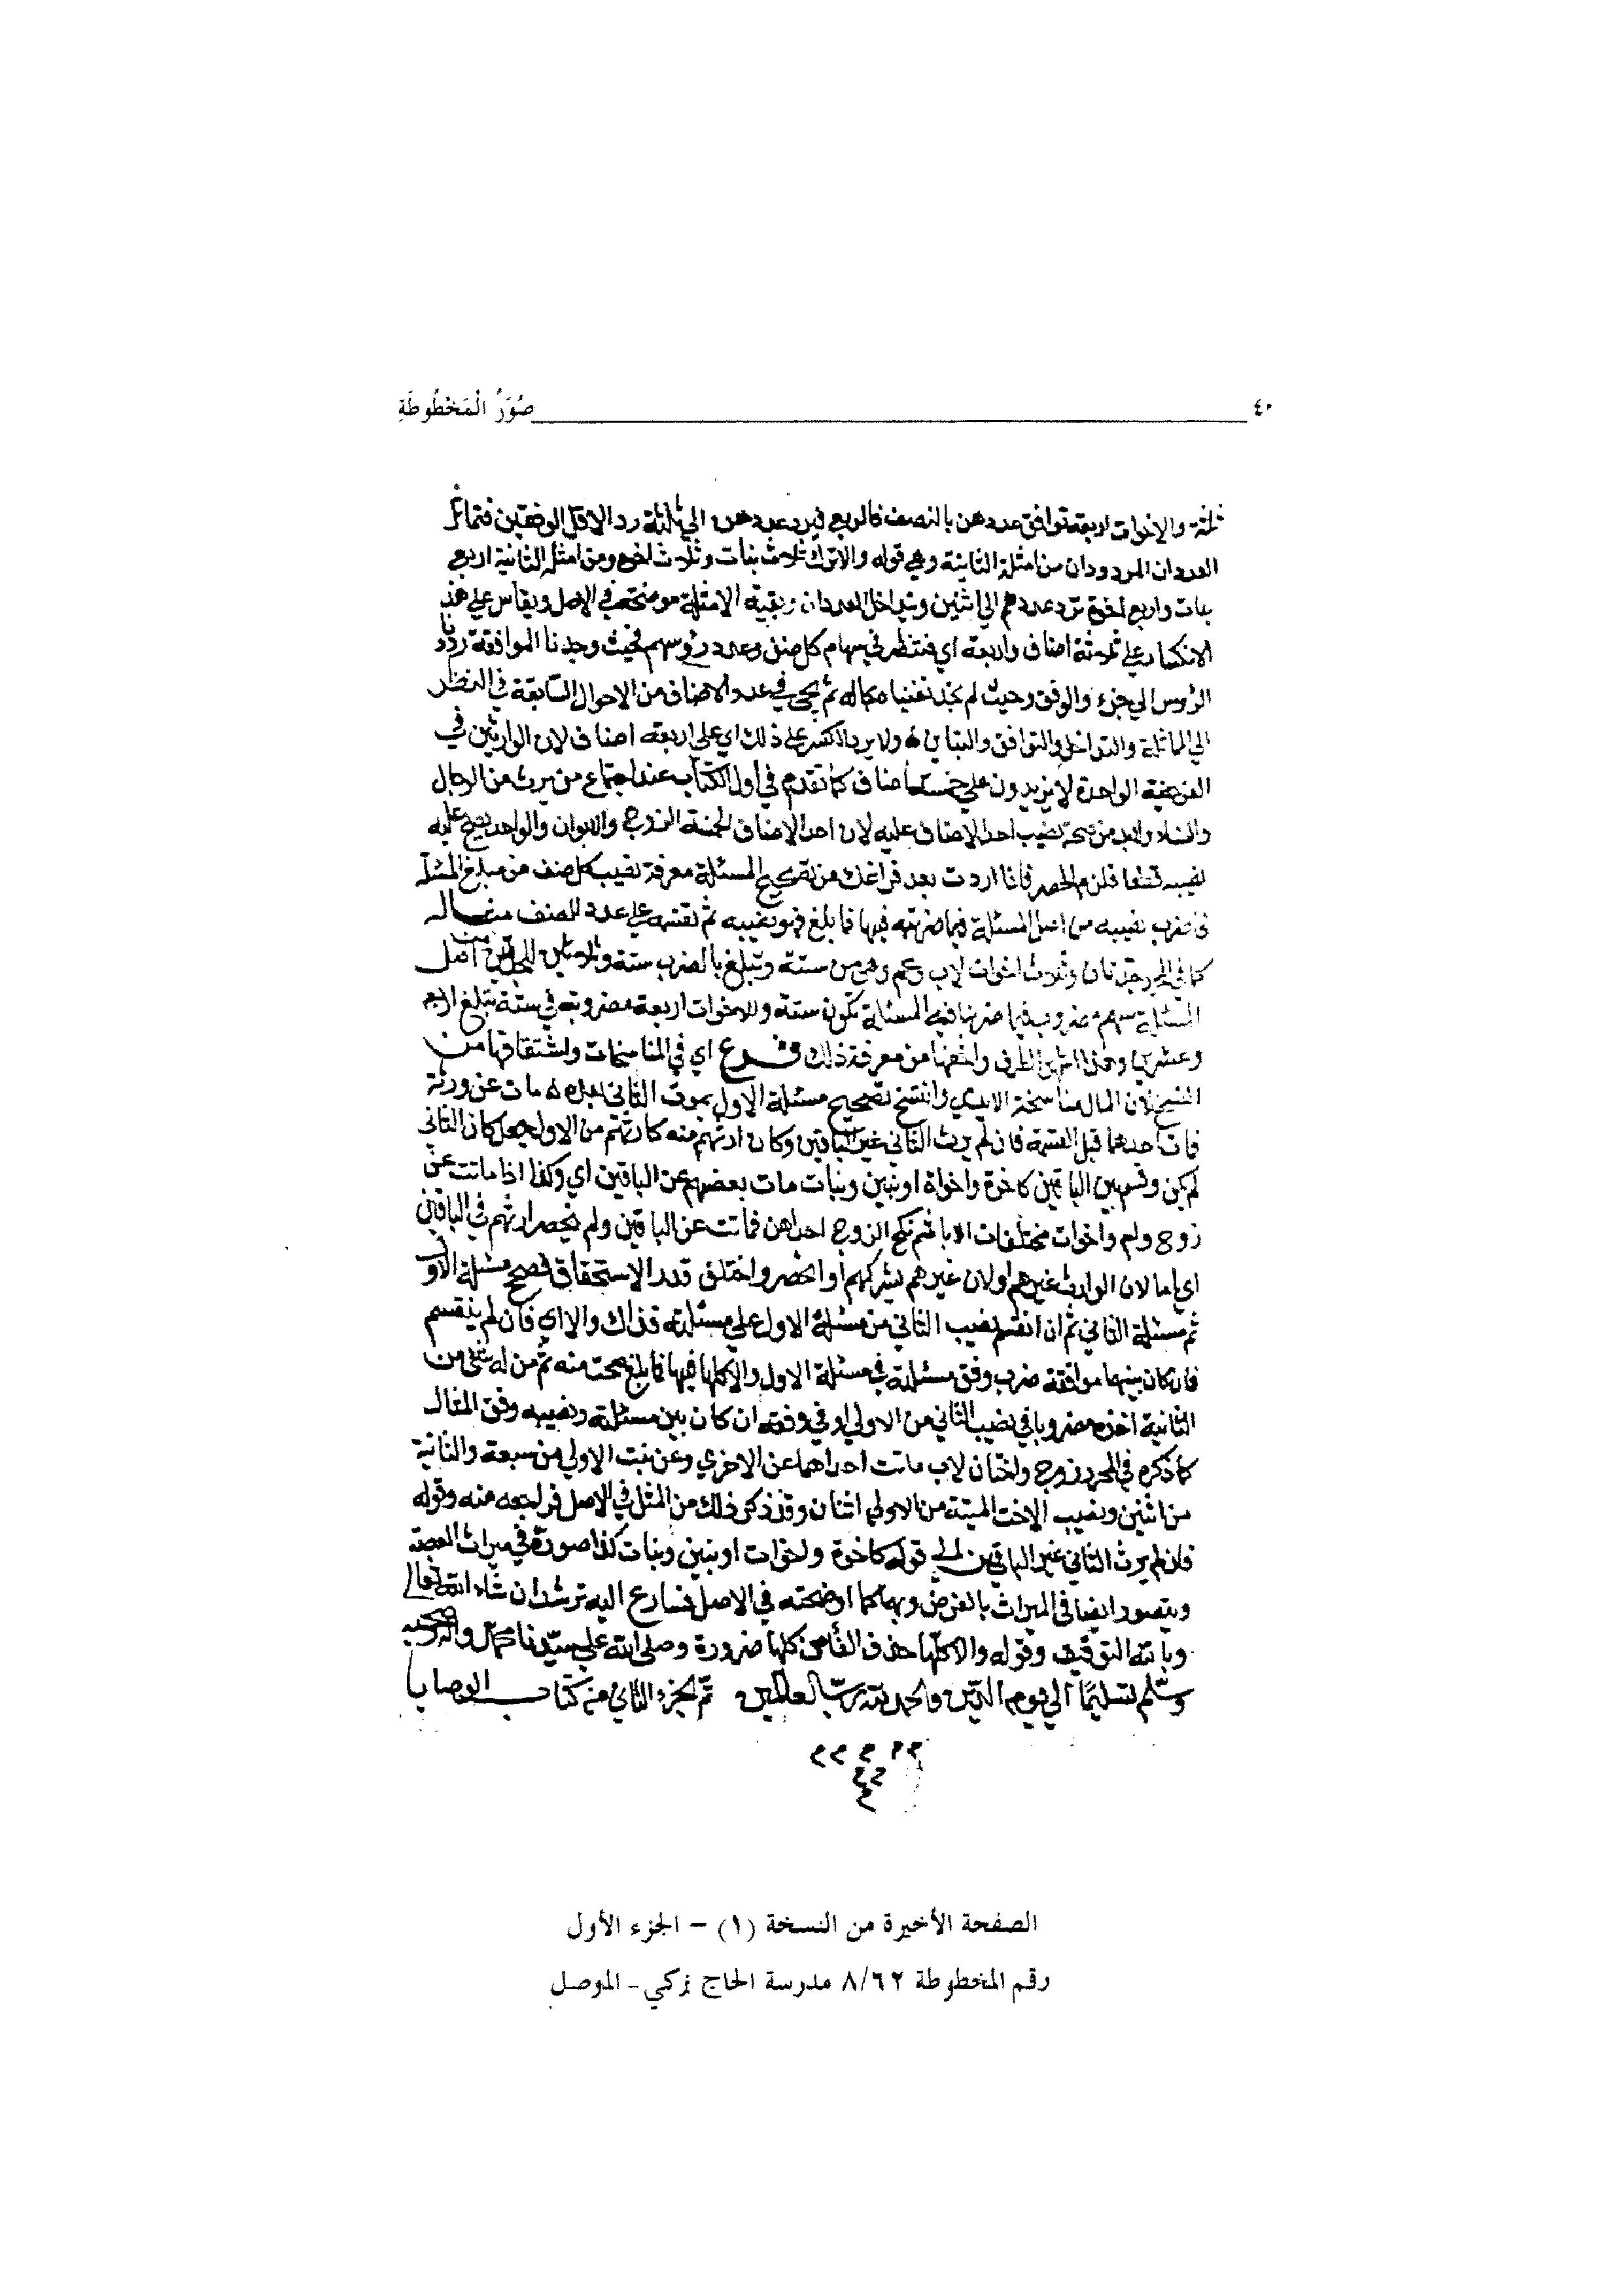 ٤٠ صُوَرُ الْمَخْطُوطَةِ
ثلثة والاخوات اربعة توافق عددهن بالنصف فالربع فيرد عددهن الى ثلثة رد الاقل الوفقين فتماثل
العددان المردودان من امثلة الثانية وهي قوله والاترك ثلاث بنات وثلاث اخوة ومن امثلة الثانية اربع
بنات واربع اخوة ترد عددهم الى اثنين ويتداخل العددان وبقية الامثلة موضحة في الاصل ويقاس على هذا
الانكسار على ثلاثة اصناف واربعة اي فننظر في سهام كل صنف وعدد رؤسهم فحيث وجدنا الموافقة رددنا
الرؤس الى جزء والوفق وحيث لم نجد بقينا بحاله ثم يجي في عدد الاصناف من الاحوال السابقة في النظر
الى المماثلة والتداخل والتوافق والتباين ولا يزيد الكسر على ذلك اي على اربعة اصناف لان الوارثين في
الفريضة الواحدة لا يزيدون على خمسة اصناف كما تقدم في اول الكتاب عند اجتماع من يرث من الرجال
والنساء ولابد من صحة نصيب احد الاصناف عليه لان احد الاصناف الخمسة الزوج والابوان والواحد يصح عليه
نصيبه قطعا فلزم الحصر فاذا اردت بعد فراغك من تصحيح المسئلة معرفة نصيب كل صنف من مبلغ المسئلة
فاضرب نصيبه من اصل المسئلة فيما ضربته فيها فما بلغ فهو نصيبه ثم تقسمه على عدد الصنف مثاله
كما في المحرر جدتان وثلاث اخوات لاب وعم وهي من ستة وتبلغ بالضرب ستة وثلاثين للجدتين من اصل
المسئلة سهم مضروب فيما ضربنا فيه المسئلة تكون ستة وللاخوات اربعة مضروبة في ستة تبلغ اربع
وعشرين وهذا الطرق وانفعها من معرفة ذلك فرع اي في المناسخات واشتقاقها من
النسخ لان المال مناسخة الايدي وانتسخ تصحيح مسئلة الاول بموت الثاني بعده مات عن ورثة
فمات احدهما قبل القسمة فان لم يرث الثاني غير الباقين وكان ارثهم منه كارثهم من الاول جعل كان الثاني
لم يكن وقسم بين الباقين كاخوة واخواة او بنين وبنات مات بعضهم عن الباقين اي وكذا اذا ماتت عن
زوج وام واخوات مختلفات الاباء ثم نكح الزوج احداهن فماتت عن الباقين ولم ينحصر ارثهم في الباقين
اي اما لان الوارث غيرهم او لان غيرهم يشركهم او انحصر واختلف قدر الاستحقاق فصحح مسئلة الاول
ثم مسئلة الثاني ثم ان انقسم نصيب الثاني من مسئلة الاول على مسئلته فذاك والا اي فان لم ينقسم
فان كان بينهما موافقة ضرب وفق مسئلته في مسئلة الاول والا كلها فيها فما بلغ صحت منه ثم من له شئ من
الثانية اخذه مضروبا في نصيب الثاني من الاولى او في وفقه ان كان بين مسئلته ونصيبه وفق المثال
كما ذكره في المحرر زوج واختان لاب ماتت احداهما عن الاخرى وعن بنت الاولى من سبعة والثانية
من اثنين ونصيب الاخت الميتة من الاولى اثنان وقد ذكر ذلك من المثل في الاصل فراجعه منه وقوله
فان لم يرث الثاني غير الباقين الى قوله كاخوة واخوات او بنين وبنات كذا صورة في ميراث العصبة
ويتصور ايضا في الميراث بالفرض وبهما كما اوضحته في الاصل فسارع اليه ترشد ان شاء الله تعالى
وبالله التوفيق وقوله والا كلها حذف الفا من كلها ضرورة وصلى الله على سيدنا محمد وآله وصحبه
وسلم تسليمًا الى يوم الدين والحمد لله رب العالمين تم الجزء الثاني من كتاب الوصايا
م م م م م
م م
م
الصفحة الأخيرة من النسخة (١) – الجزء الأول
رقم المخطوطة ٨/٦٢ مدرسة الحاج زكي – الموصل